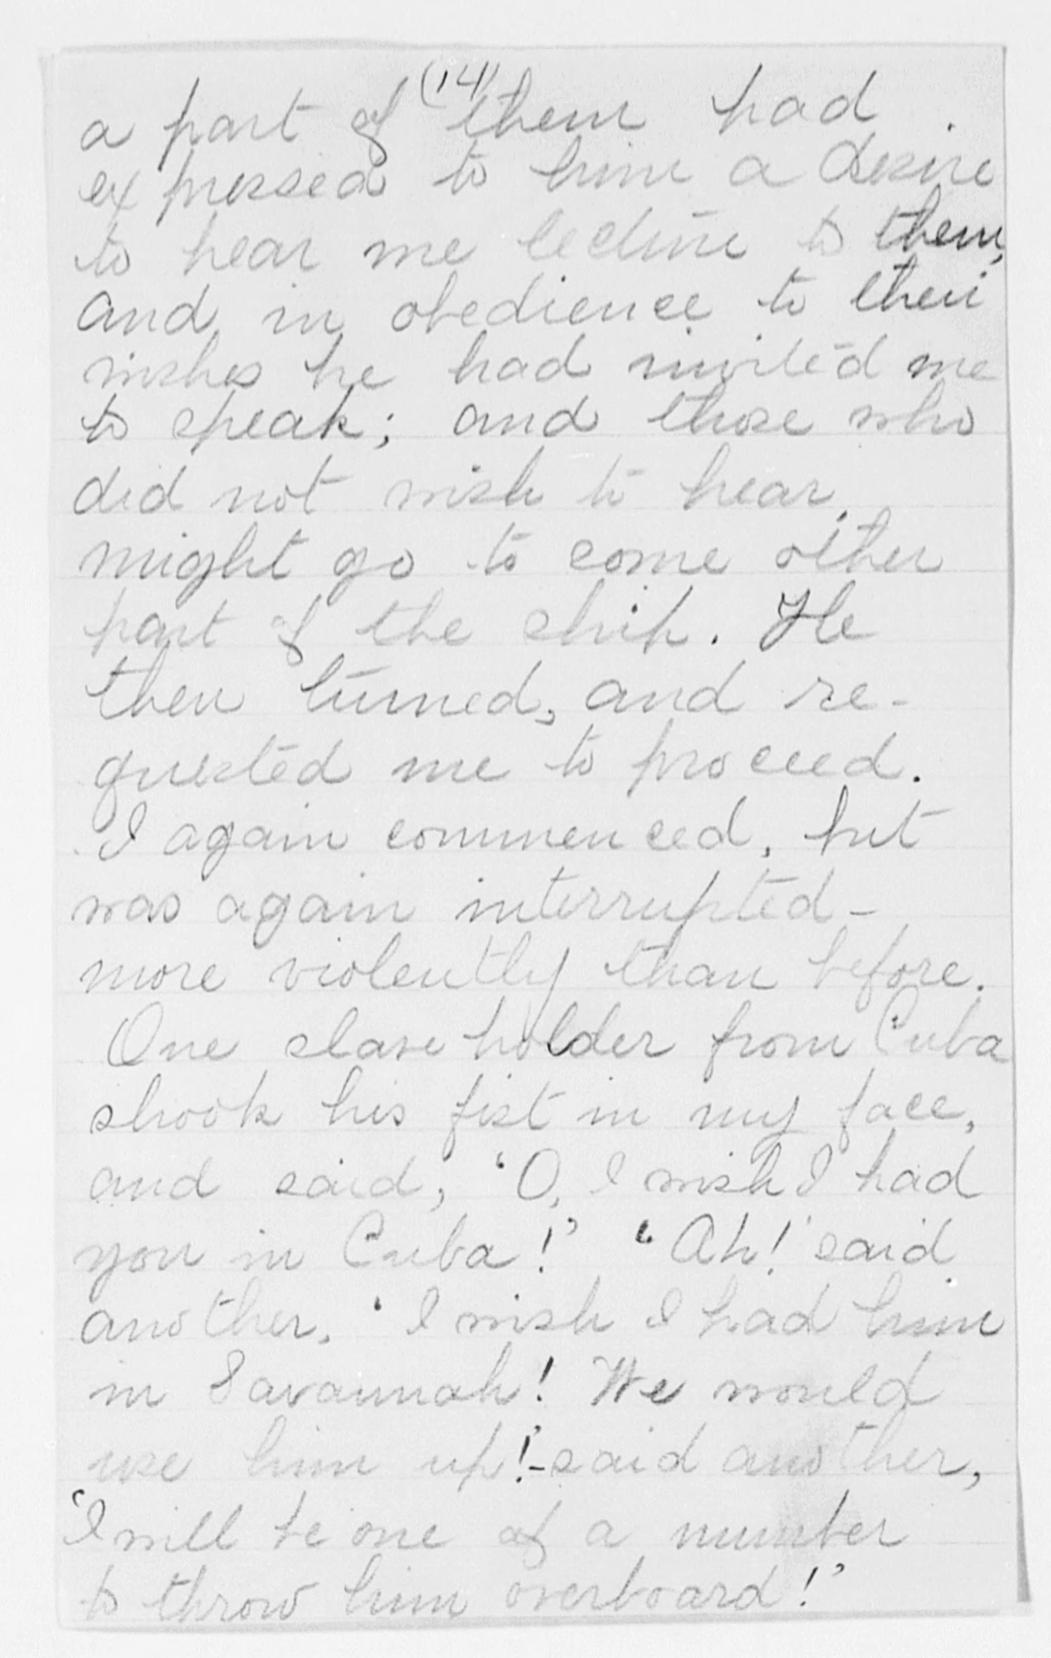 (14)
a part of them had
expressed to him a desire
to hear me lecture to them,
and in obedience to their
wishes he had invited me
to speak; and those who
did not wish to hear,
might go to some other
part of the ship. He
then turned, and re-
quested me to proceed.
I again commenced, but
was again interrupted -
more violently than before.
One slave holder from Cuba
shook his fist in my face,
and said, 'O, I wish I had
you in Cuba!' 'Ah!' said
another, 'I wish I had him
in Savannah! We would
use him up!'- said another,
'I will be one of a number
to throw him overboard!'